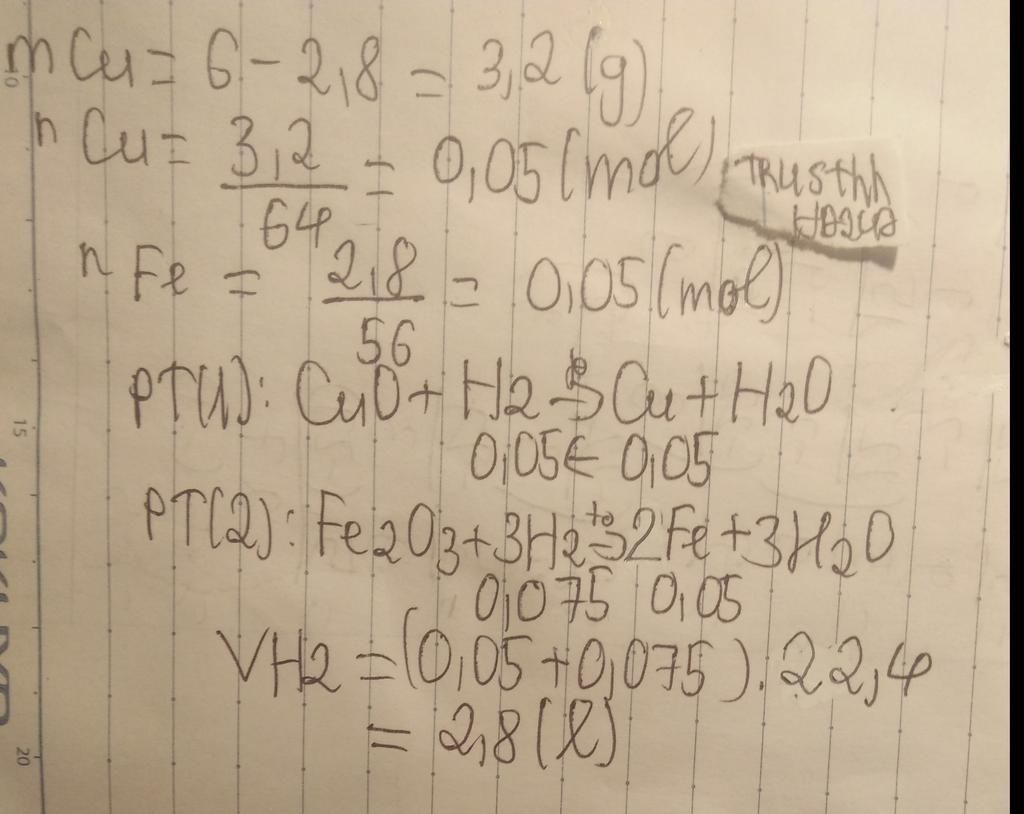 mCu = 6 - 2,8 = 3,2 (g)
nCu = 3,2/64 = 0,05 (mol)
TRUSthh
nFe = 2,8/56 = 0,05 (mol)
PT(1): CuO + H2 →t° Cu + H2O
0,05 ← 0,05
PT(2): Fe2O3 + 3H2 →t° 2Fe + 3H2O
0,075 0,05
VH2 = (0,05 + 0,075) . 22,4
= 2,8 (l)
10
15
20